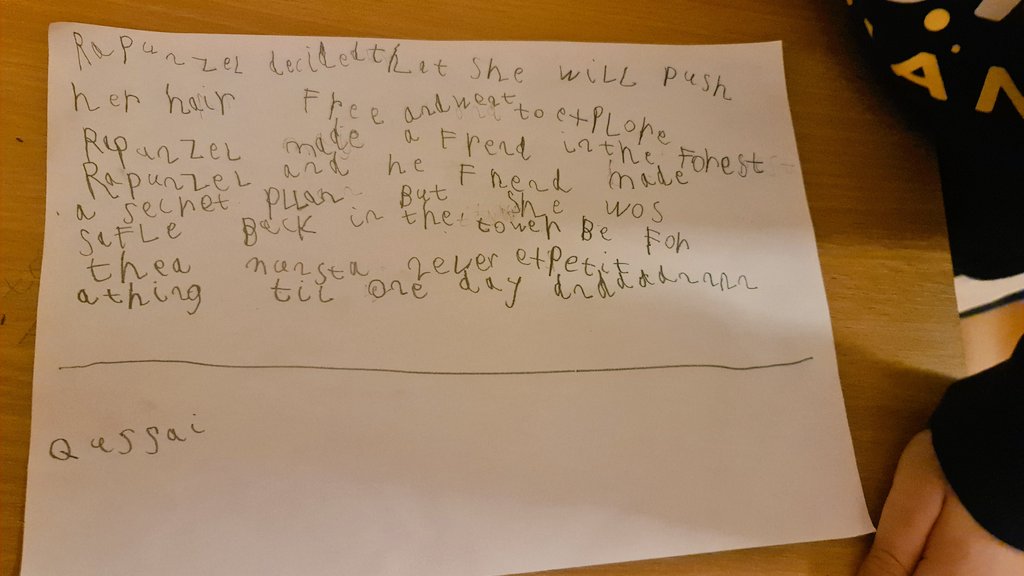 Rapunzel decided that she will push
her hair Free and weat to explore
Rapunzel made a Frend in the Forest
Rapunzel and he Frend made
a secret pllan But she wos
safle Back in the tower Be For
thea nursta never expetit
a thing til one day andddannnn
Qussai